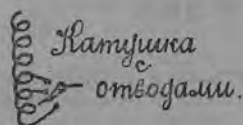 Катушка
с
отводами.